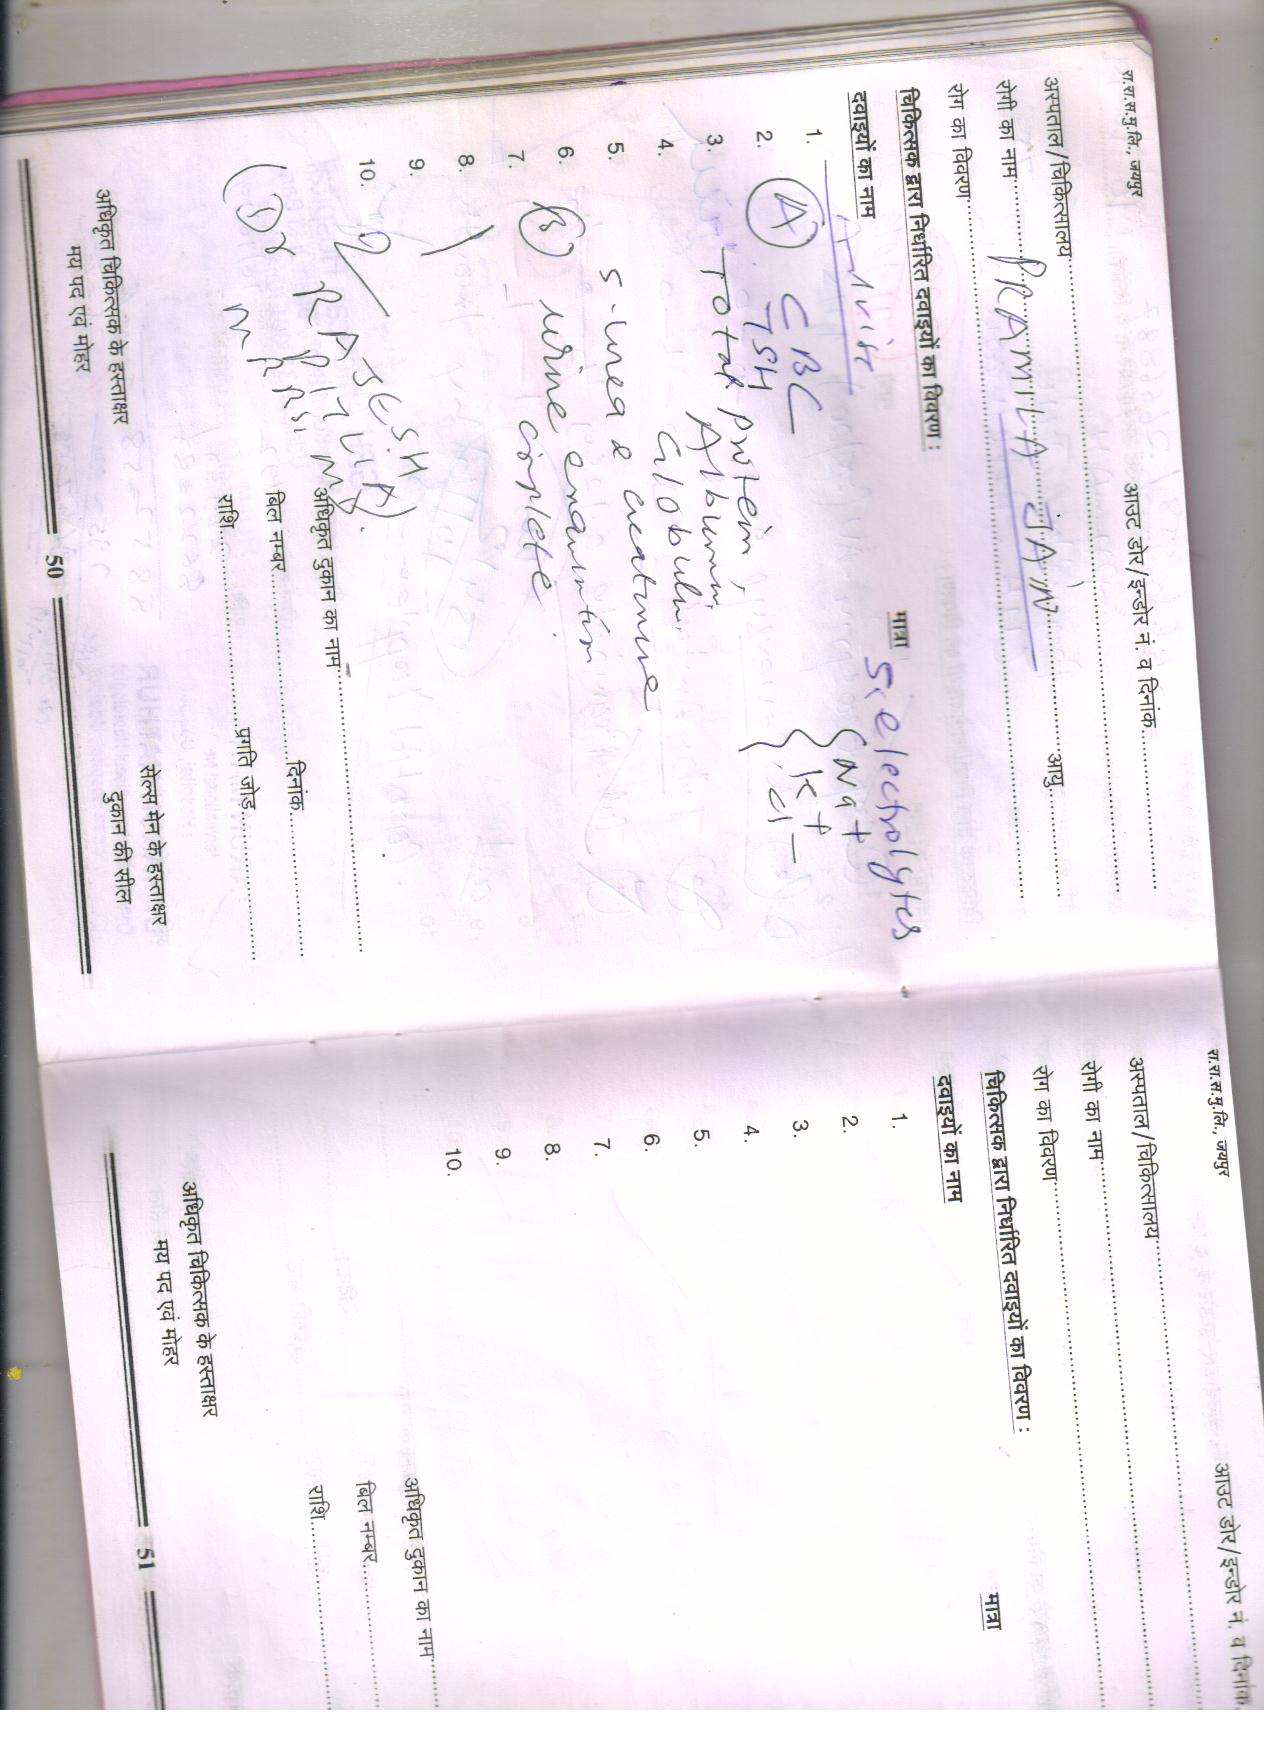 रा.रा.स.मु.लि., जयपुर
आउट डोर/इन्डोर नं. व दिनांक
अस्पताल/चिकित्सालय
रोगी का नाम PRAMILA JAIN आयु
रोग का विवरण
चिकित्सक द्वारा निर्धारित दवाइयों का विवरण :
दवाइयों का नाम मात्रा
S. electrolytes
Na +
K +
Cl -
1.
2. (A) CBC
TSH
3. Total protein,
Albumin,
4. Globulin
5. S-urea & creatinine
6.
7. (B) urine
complete
8.
9.
10.
(Dr RAJESH
अधिकृत दुकान का नाम
बिल नम्बर दिनांक
राशि प्रगति जोड़
अधिकृत चिकित्सक के हस्ताक्षर
मय पद एवं मोहर
सेल्स मेन के हस्ताक्षर
दुकान की सील
50
रा.रा.स.मु.लि., जयपुर
आउट डोर/इन्डोर नं. व दिनांक
अस्पताल/चिकित्सालय
रोगी का नाम
रोग का विवरण
चिकित्सक द्वारा निर्धारित दवाइयों का विवरण :
दवाइयों का नाम मात्रा
1.
2.
3.
4.
5.
6.
7.
8.
9.
10.
अधिकृत दुकान का नाम
बिल नम्बर
राशि
अधिकृत चिकित्सक के हस्ताक्षर
मय पद एवं मोहर
51